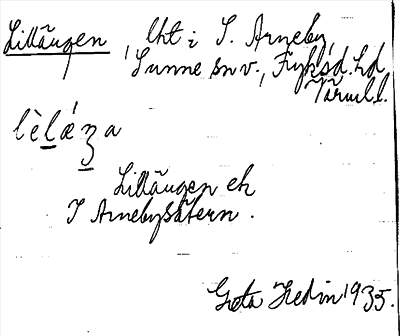 Lillängen, lht i S. Arneby,
Sunne sn v., Fryksd. hd
Värml. l.
lèlǽʒa
Lillängen eh
S Arnebysätern.
Greta Hedin 1935.